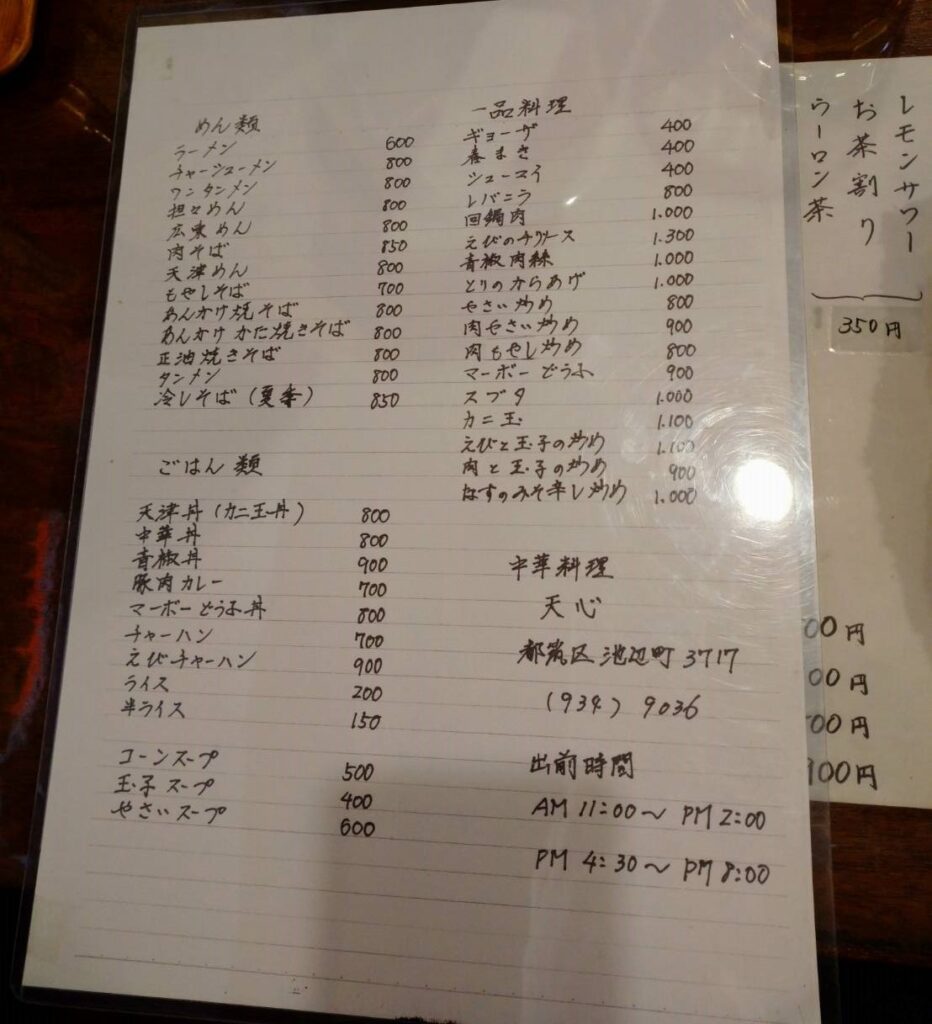 めん類
ラーメン 600
チャーシューメン 800
ワンタンメン 800
担々めん 800
広東めん 800
肉そば 850
天津めん 800
もやしそば 700
あんかけ焼そば 800
あんかけかた焼きそば 800
正油焼きそば 800
タンメン 800
冷しそば（夏季） 850
ごはん類
天津丼（カニ玉丼） 800
中華丼 800
青椒丼 900
豚肉カレー 700
マーボーどうふ丼 800
チャーハン 700
えびチャーハン 900
ライス 200
半ライス 150
コーンスープ 500
玉子スープ 400
やさいスープ 600
一品料理
ギョーザ 400
春まき 400
シューマイ 400
レバニラ 800
回鍋肉 1.000
えびのチリソース 1.300
青椒肉絲 1.000
とりのからあげ 1.000
やさい炒め 800
肉やさい炒め 900
肉もやし炒め 800
マーボーどうふ 900
スブタ 1.000
カニ玉 1.100
えびと玉子の炒め 1.100
肉と玉子の炒め 900
なすのみそ辛し炒め 1.000
中華料理
天心
都筑区池辺町3717
(934) 9036
出前時間
AM 11:00～PM 2:00
PM 4:30～PM 8:00
レモンサワー
お茶割り
ウーロン茶
350円
00円
00円
00円
100円